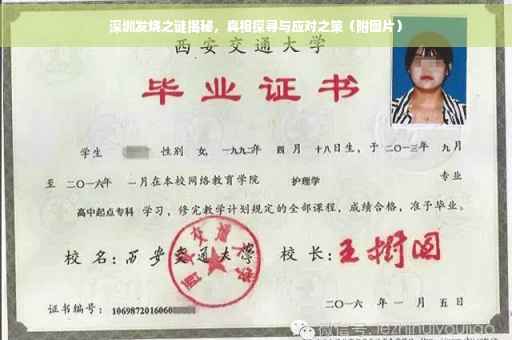 深圳发烧之谜揭秘，真相探寻与应对之策（附图片）
西安交通大学
毕业证书
学生 性别 女，一九九二年 四 月 十八日生，于 二〇一三年 九月
至 二〇一六年 一月在本校网络教育学院 护理学 专业
高中起点专科 学习，修完教学计划规定的全部课程，成绩合格，准予毕业。
校 名：西安交通大学 校 长：王树国
西安交通大学
证书编号：1069872016060 二〇一六 年 一 月 五 日
微信号:jiezhinuiyoujiao